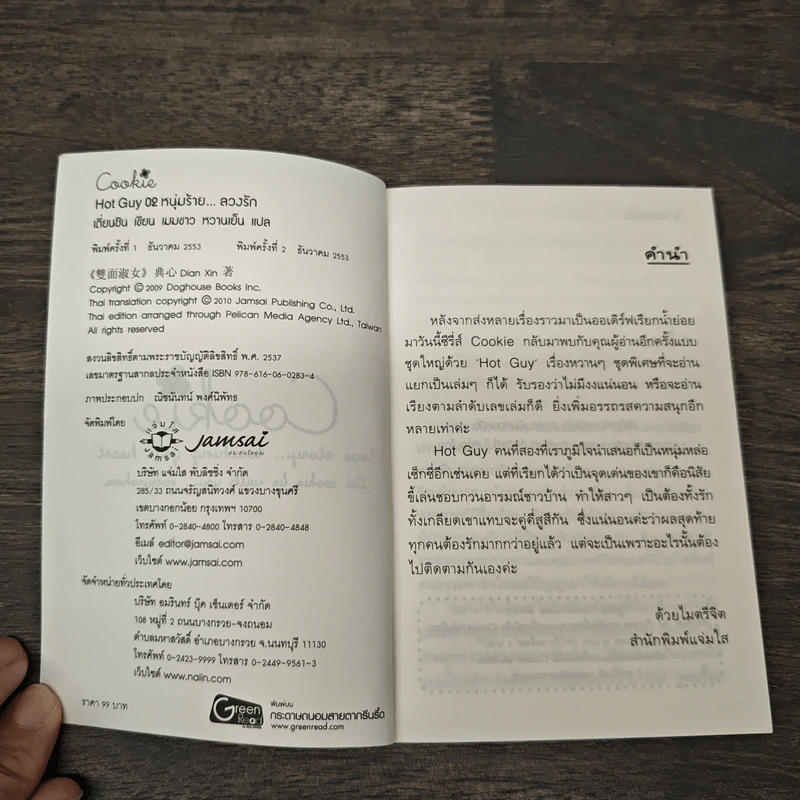 Cookie
Hot Guy 02 หนุ่มร้าย... ลวงรัก
เตี่ยนซิน เขียน เมมขาว หวานเย็น แปล
พิมพ์ครั้งที่ 1 ธันวาคม 2553 พิมพ์ครั้งที่ 2 ธันวาคม 2553
《雙面淑女》 典心 Dian Xin 著
Copyright © 2009 Doghouse Books Inc.
Thai translation copyright © 2010 Jamsai Publishing Co., Ltd.
Thai edition arranged through Pelican Media Agency Ltd., Taiwan
All rights reserved
สงวนลิขสิทธิ์ตามพระราชบัญญัติลิขสิทธิ์ พ.ศ. 2537
เลขมาตรฐานสากลประจำหนังสือ ISBN 978-616-06-0283-4
ภาพประกอบปก ณัชนันทน์ พงศ์นิพัทธ
จัดพิมพ์โดย
แจ่มใส
Jamsai
Jamsai
ประทับใจคุณ
บริษัท แจ่มใส พับลิชชิ่ง จำกัด
285/33 ถนนจรัญสนิทวงศ์ แขวงบางขุนศรี
เขตบางกอกน้อย กรุงเทพฯ 10700
โทรศัพท์ 0-2840-4800 โทรสาร 0-2840-4848
อีเมล์ editor@jamsai.com
เว็บไซต์ www.jamsai.com
จัดจำหน่ายทั่วประเทศโดย
บริษัท อมรินทร์ บุ๊ค เซ็นเตอร์ จำกัด
108 หมู่ที่ 2 ถนนบางกรวย-จงถนอม
ตำบลมหาสวัสดิ์ อำเภอบางกรวย จ.นนทบุรี 11130
โทรศัพท์ 0-2423-9999 โทรสาร 0-2449-9561-3
เว็บไซต์ www.naiin.com
ราคา 99 บาท
Green Read
พิมพ์บน
กระดาษถนอมสายตากรีนรี้ด
www.greenread.com
คำนำ
หลังจากส่งหลายเรื่องราวมาเป็นออเดิร์ฟเรียกน้ำย่อย
มาวันนี้ซีรี่ส์ Cookie กลับมาพบกับคุณผู้อ่านอีกครั้งแบบ
ชุดใหญ่ด้วย 'Hot Guy' เรื่องหวานๆ ชุดพิเศษที่จะอ่าน
แยกเป็นเล่มๆ ก็ได้ รับรองว่าไม่มีงงแน่นอน หรือจะอ่าน
เรียงตามลำดับเลขเล่มก็ดี ยิ่งเพิ่มอรรถรสความสนุกอีก
หลายเท่าค่ะ
Hot Guy คนที่สองที่เราภูมิใจนำเสนอก็เป็นหนุ่มหล่อ
เซ็กซี่อีกเช่นเคย แต่ที่เรียกได้ว่าเป็นจุดเด่นของเขาก็คือนิสัย
ขี้เล่นชอบกวนอารมณ์ชาวบ้าน ทำให้สาวๆ เป็นต้องทั้งรัก
ทั้งเกลียดเขาแทบจะคู่คี่สูสีกัน ซึ่งแน่นอนค่ะว่าผลสุดท้าย
ทุกคนต้องรักมากกว่าอยู่แล้ว แต่จะเป็นเพราะอะไรนั้นต้อง
ไปติดตามกันเองค่ะ
ด้วยไมตรีจิต
สำนักพิมพ์แจ่มใส